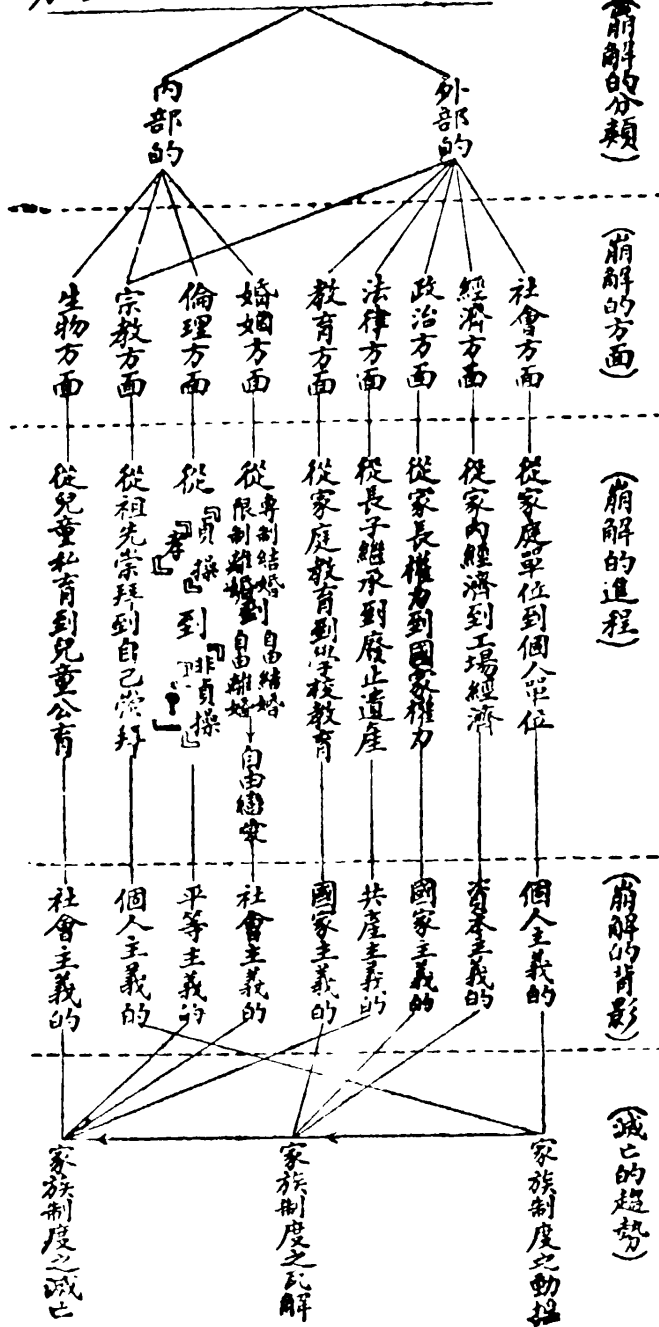 (崩解的分類)
外部的
內部的
(崩解的方面)
社會方面
經濟方面
政治方面
法律方面
教育方面
婚姻方面
倫理方面
宗教方面
生物方面
(崩解的進程)
從家庭單位到個人單位
從家內經濟到工場經濟
從家長權力到國家權力
從長子繼承到廢止遺產
從家庭教育到學校教育
從專制結婚限制離婚到自由結婚自由離婚→自由戀愛
從『貞操』『孝』到『非貞操』『!』
從祖先崇拜到自己崇拜
從兒童私育到兒童公育
(崩解的背影)
個人主義的
資本主義的
國家主義的
共產主義的
國家主義的
社會主義的
平等主義的
個人主義的
社會主義的
(滅亡的趨勢)
家族制度之動搖
家族制度之瓦解
家族制度之滅亡